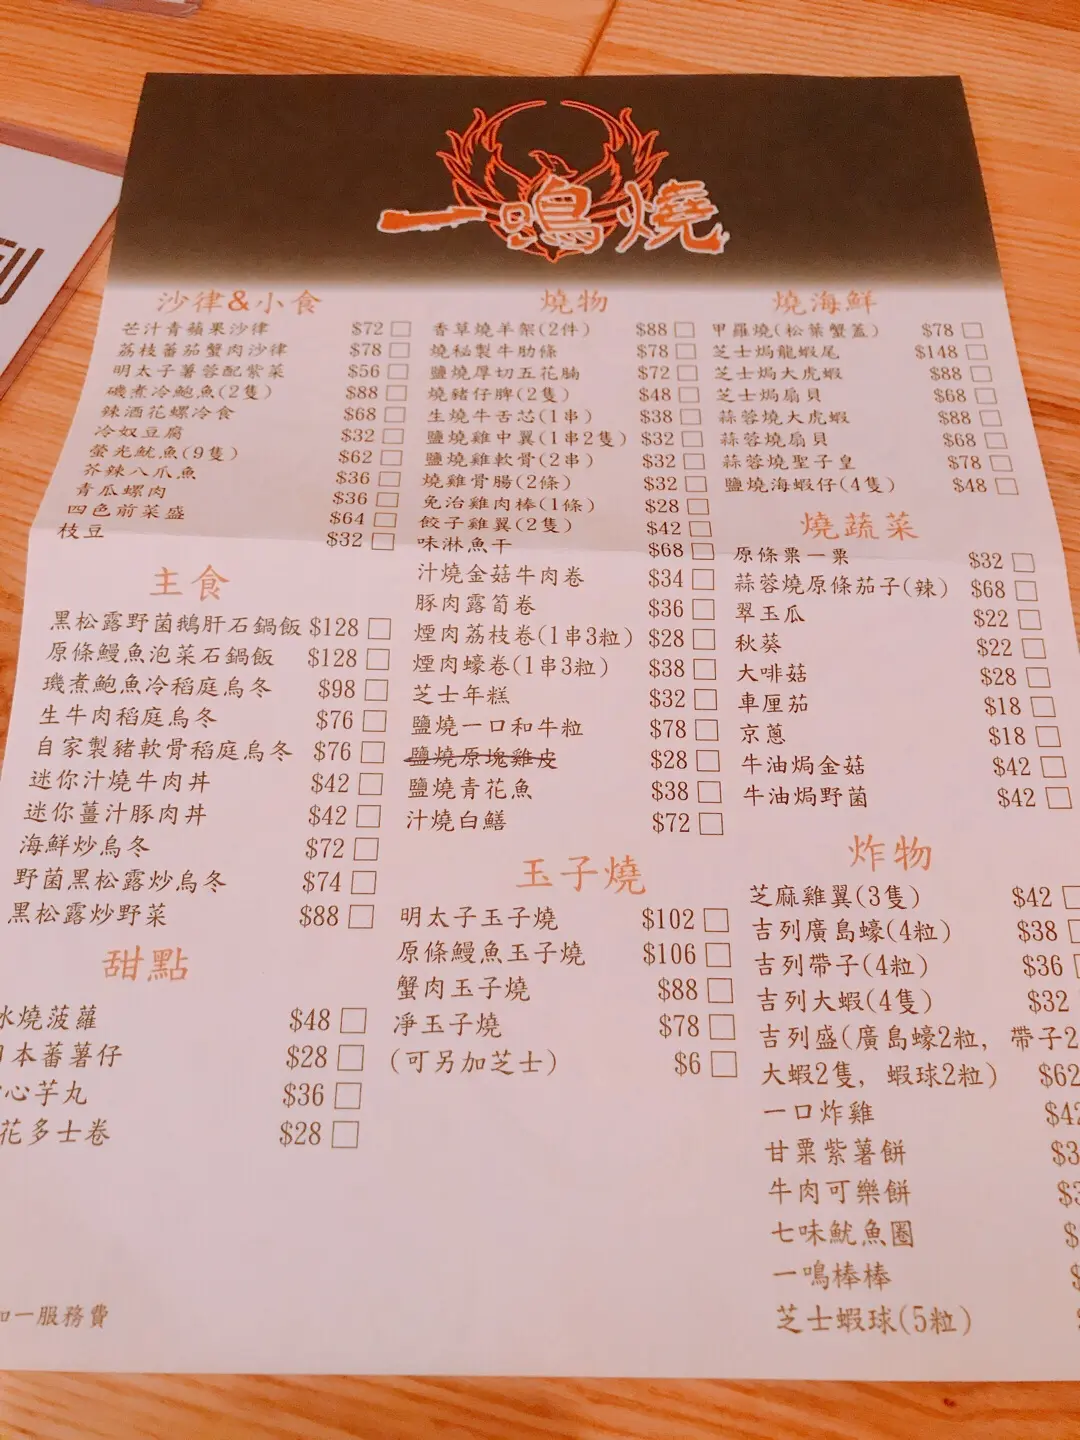 一鳴燒
沙律&小食
芒汁青蘋果沙律 $72
荔枝蕃茄蟹肉沙律 $78
明太子薯蓉配紫菜 $56
磯煮冷鮑魚(2隻) $88
辣酒花螺冷食 $68
冷奴豆腐 $32
螢光魷魚(9隻) $62
芥辣八爪魚 $36
青瓜螺肉 $36
四色前菜盛 $64
枝豆 $32
主食
黑松露野菌鵝肝石鍋飯 $128
原條鰻魚泡菜石鍋飯 $128
璣煮鮑魚冷稻庭烏冬 $98
生牛肉稻庭烏冬 $76
自家製豬軟骨稻庭烏冬 $76
迷你汁燒牛肉丼 $42
迷你薑汁豚肉丼 $42
海鮮炒烏冬 $72
野菌黑松露炒烏冬 $74
黑松露炒野菜 $88
甜點
冰燒菠蘿 $48
日本蕃薯仔 $28
心芋丸 $36
花多士卷 $28
加一服務費
燒物
香草燒羊架(2件) $88
燒秘製牛肋條 $78
鹽燒厚切五花腩 $72
燒豬仔脾(2隻) $48
生燒牛舌芯(1串) $38
鹽燒雞中翼(1串2隻) $32
鹽燒雞軟骨(2串) $32
燒雞骨腸(2條) $32
免治雞肉棒(1條) $28
餃子雞翼(2隻) $42
味淋魚干 $68
汁燒金菇牛肉卷 $34
豚肉露筍卷 $36
煙肉荔枝卷(1串3粒) $28
煙肉蠔卷(1串3粒) $38
芝士年糕 $32
鹽燒一口和牛粒 $78
鹽燒原塊雞皮 $28
鹽燒青花魚 $38
汁燒白鱔 $72
玉子燒
明太子玉子燒 $102
原條鰻魚玉子燒 $106
蟹肉玉子燒 $88
凈玉子燒 $78
(可另加芝士) $6
燒海鮮
甲羅燒(松葉蟹蓋) $78
芝士焗龍蝦尾 $148
芝士焗大虎蝦 $88
芝士焗扇貝 $68
蒜蓉燒大虎蝦 $88
蒜蓉燒扇貝 $68
蒜蓉燒聖子皇 $78
鹽燒海蝦仔(4隻) $48
燒蔬菜
原條粟一粟 $32
蒜蓉燒原條茄子(辣) $68
翠玉瓜 $22
秋葵 $22
大啡菇 $28
車厘茄 $18
京蔥 $18
牛油焗金菇 $42
牛油焗野菌 $42
炸物
芝麻雞翼(3隻) $42
吉列廣島蠔(4粒) $38
吉列帶子(4粒) $36
吉列大蝦(4隻) $32
吉列盛(廣島蠔2粒, 帶子2
大蝦2隻, 蝦球2粒) $62
一口炸雞 $42
甘粟紫薯餅 $3
牛肉可樂餅 $3
七味魷魚圈 $
一鳴棒棒 $
芝士蝦球(5粒)